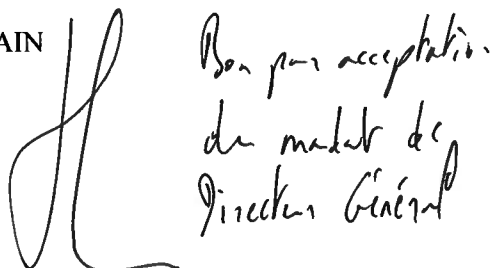 AIN
Bon pour acceptation
du mandat de
Directeur Général